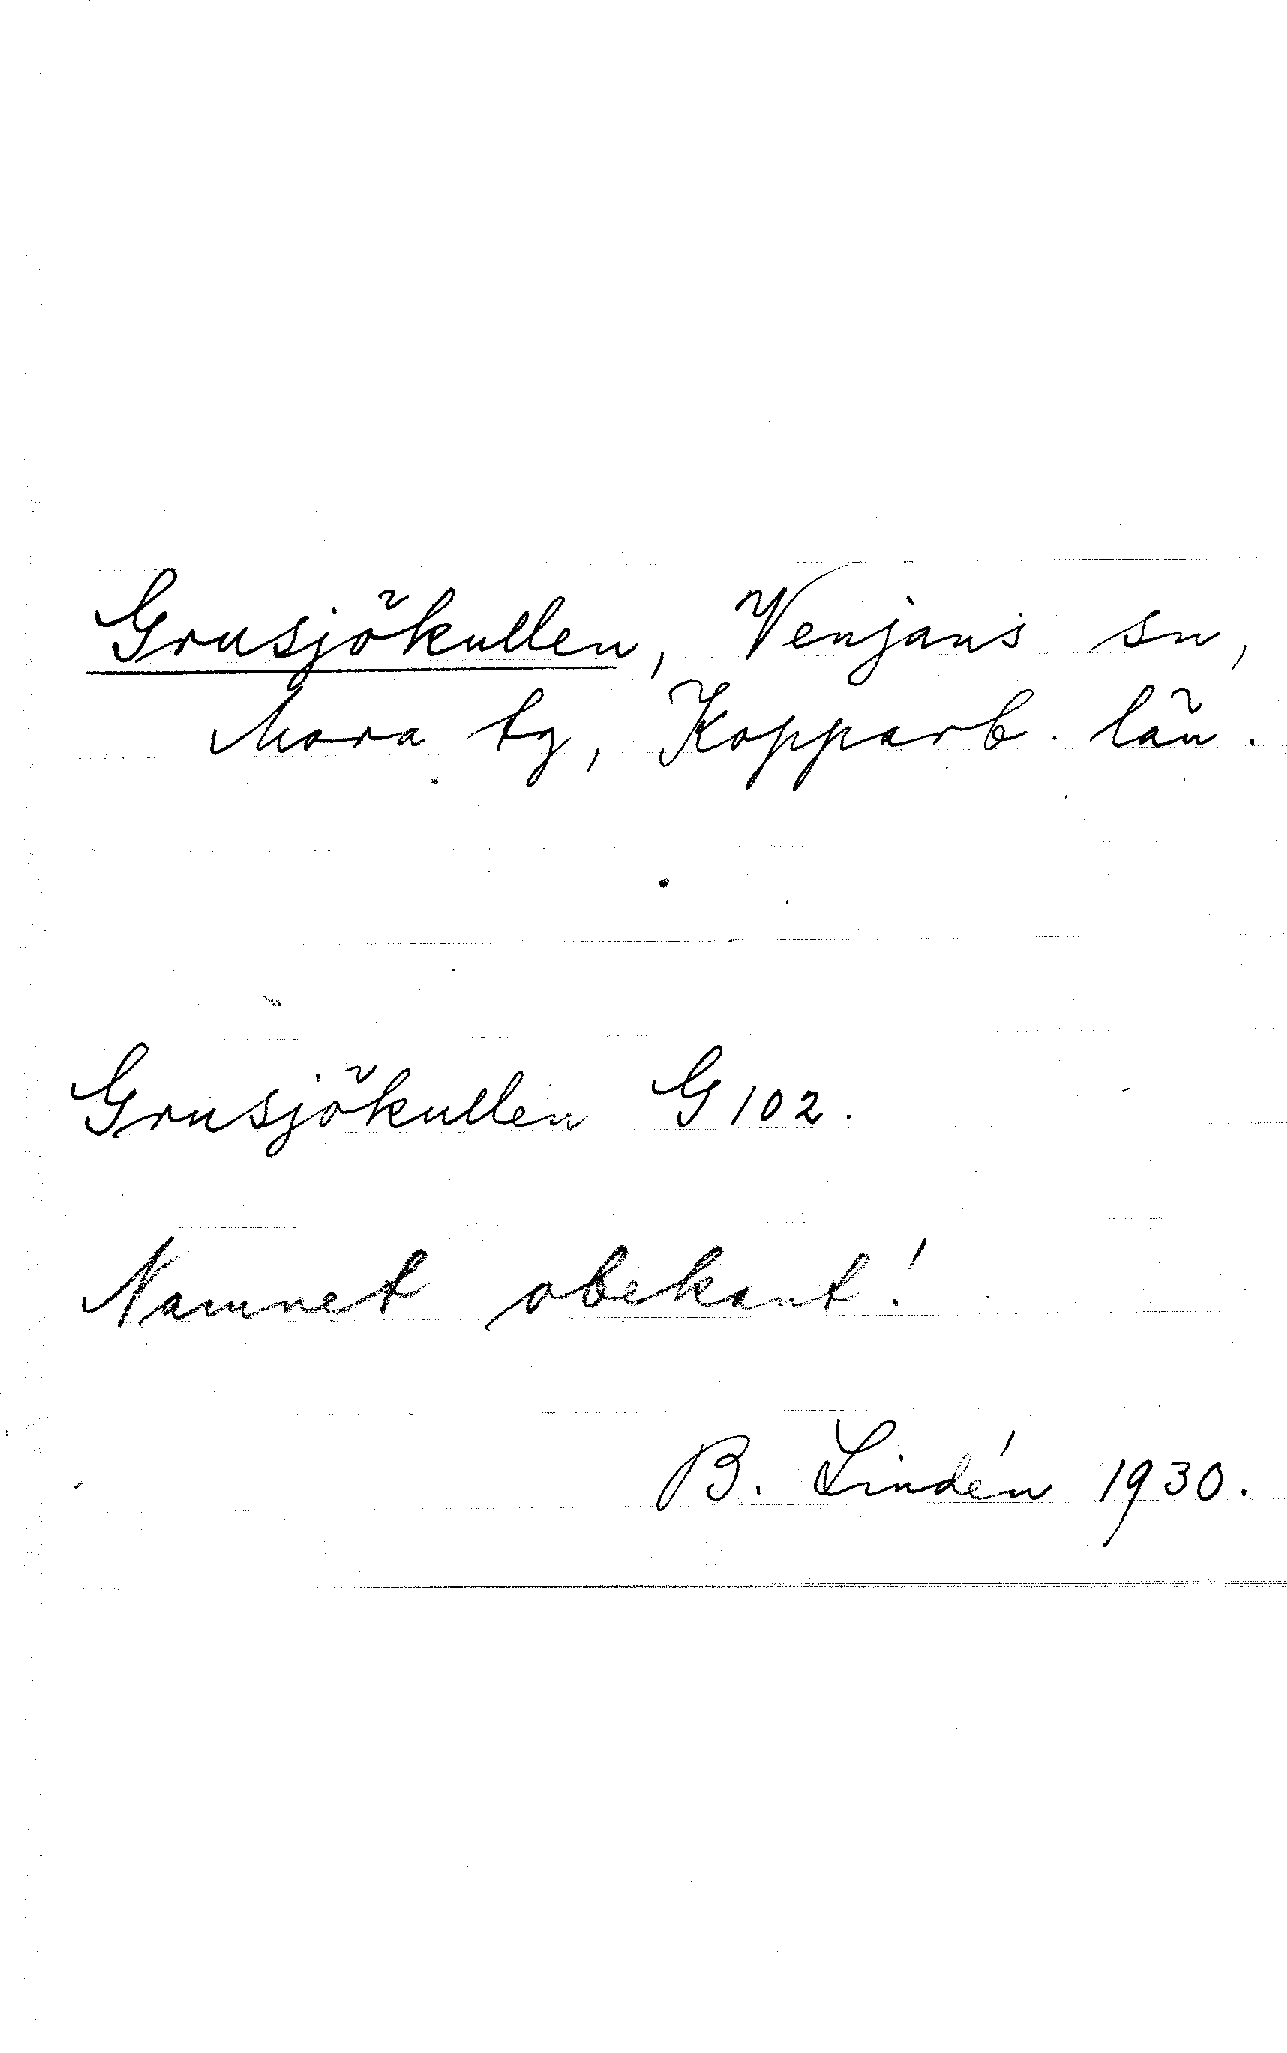 Grusjökullen, Venjans sn,
Mora tg, Kopparb. län.
Grusjökullen G 102.
Namnet obekant!
B. Lindén 1930.